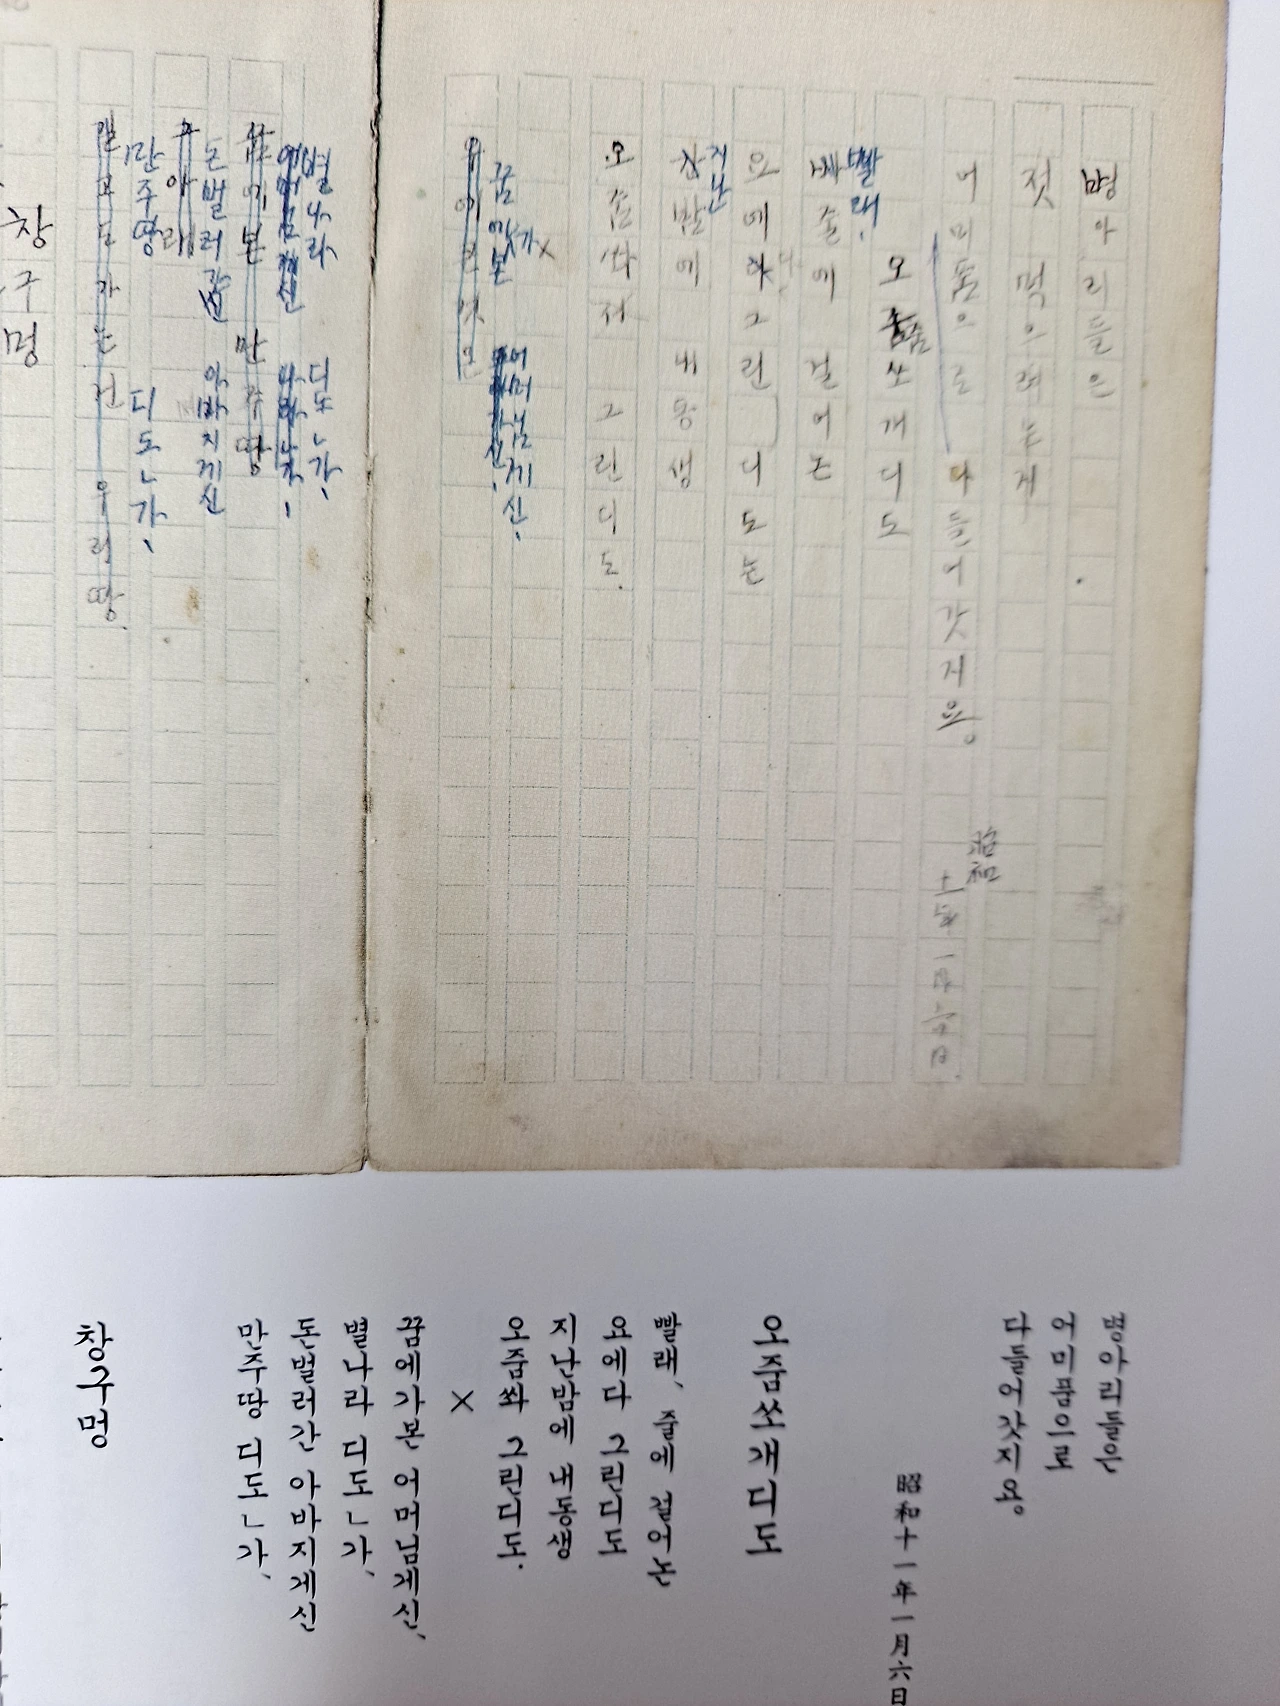 병아리들은
젓 먹으려누게
어미품으로 다들어갓지요。
昭和
十一年一月六日
오줌쏘개디도
빨래、
줄에 걸어논
요에다 그린 디도는
지난
밤에 내동생
오줌쏴서 그린디도.
×
꿈에가본 어머님게신、
별나라 디도ㄴ가、
돈벌러간 아바지게신
만주땅 디도ㄴ가、
우리땅.
창구멍
병아리들은
어미품으로
다들어갓지요。
昭和十一年一月六日
오줌쏘개디도
빨래、줄에 걸어논
요에다 그린디도
지난밤에 내동생
오줌쏴 그린디도.
×
꿈에가본 어머님게신、
별나라 디도ㄴ가、
돈벌러간 아바지게신
만주땅 디도ㄴ가、
창구멍